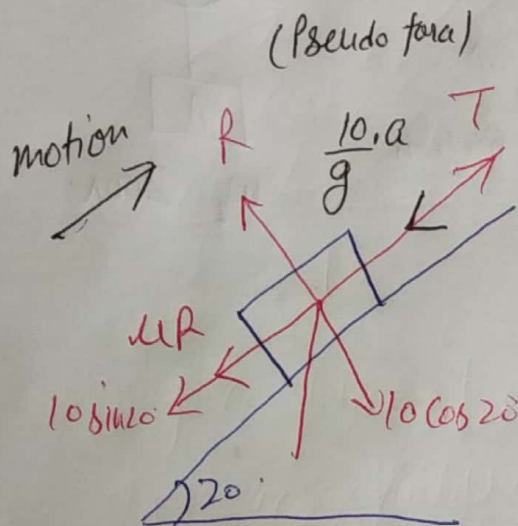 (Pseudo force)
motion
R
10.a
g
T
μR
10 sin20
10 cos 20
20